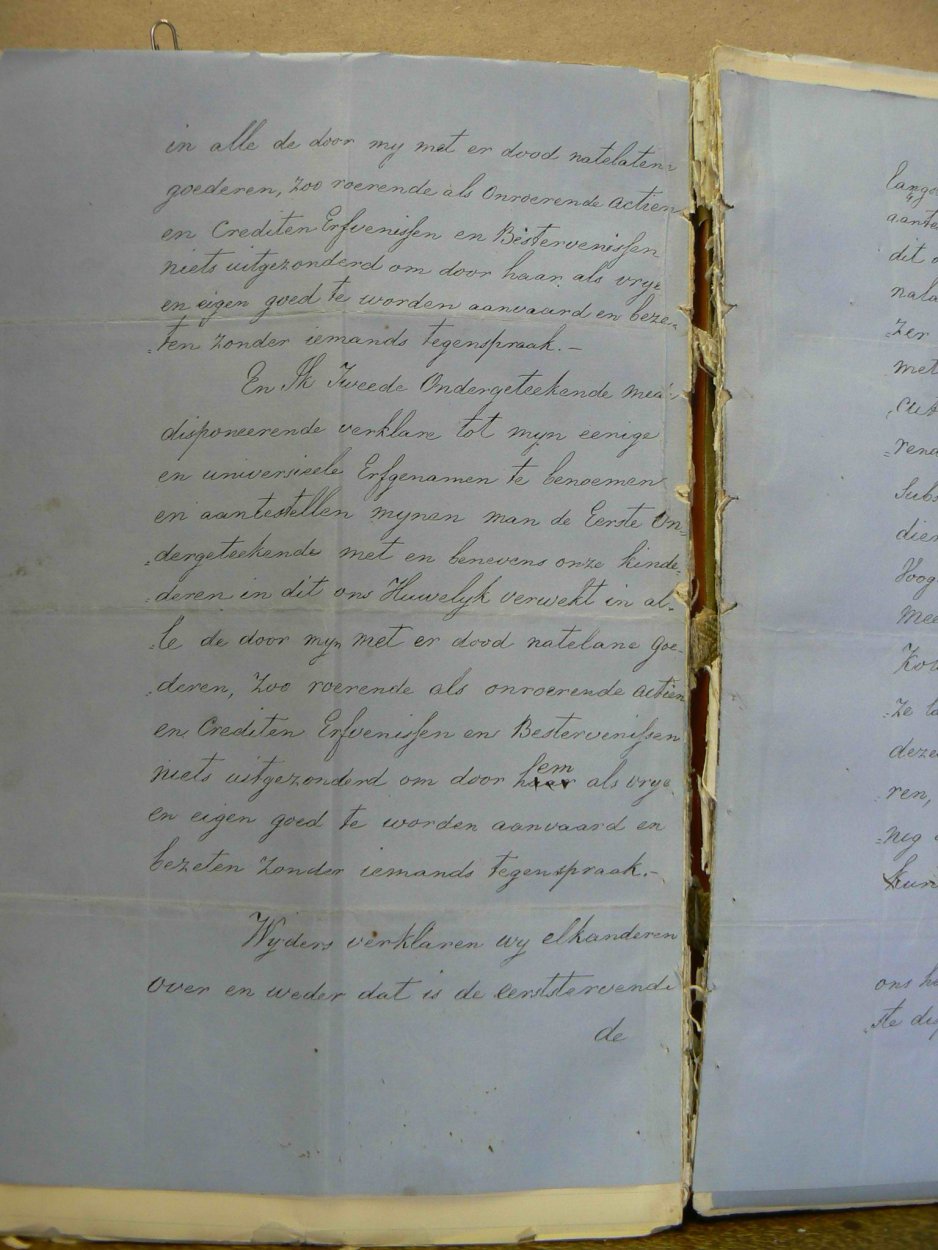 in alle de door my met er dood natelaten=
goederen, zoo roerende als Onroerende actien
en Crediten Erfvenissen en Bestervenissen
niets uitgezonderd om door haar als vrye
en eigen goed te worden aanvaard en beze=
=ten zonder iemands tegenspraak.—
En Ik Tweede Ondergeteekende mede
disponeerende verklare tot myn eenige
en universieele Erfgenamen te benoemen
en aantestellen mynen man de Eerste On=
=dergeteekende met en benevens onze kinde=
=deren in dit ons Huwelyk verwekt in al=
=le de door myn met er dood natelane goe=
=deren, zoo roerende als onroerende actien
en Crediten Erfvenissen en Bestervenissen
niets uitgezonderd om door hem als vrye
en eigen goed te worden aanvaard en
bezeten zonder iemands tegenspraak.—
Wyders verklaren wy elkanderen
over en weder dat is de eerststervende
de
dit
met
=ren,
ons